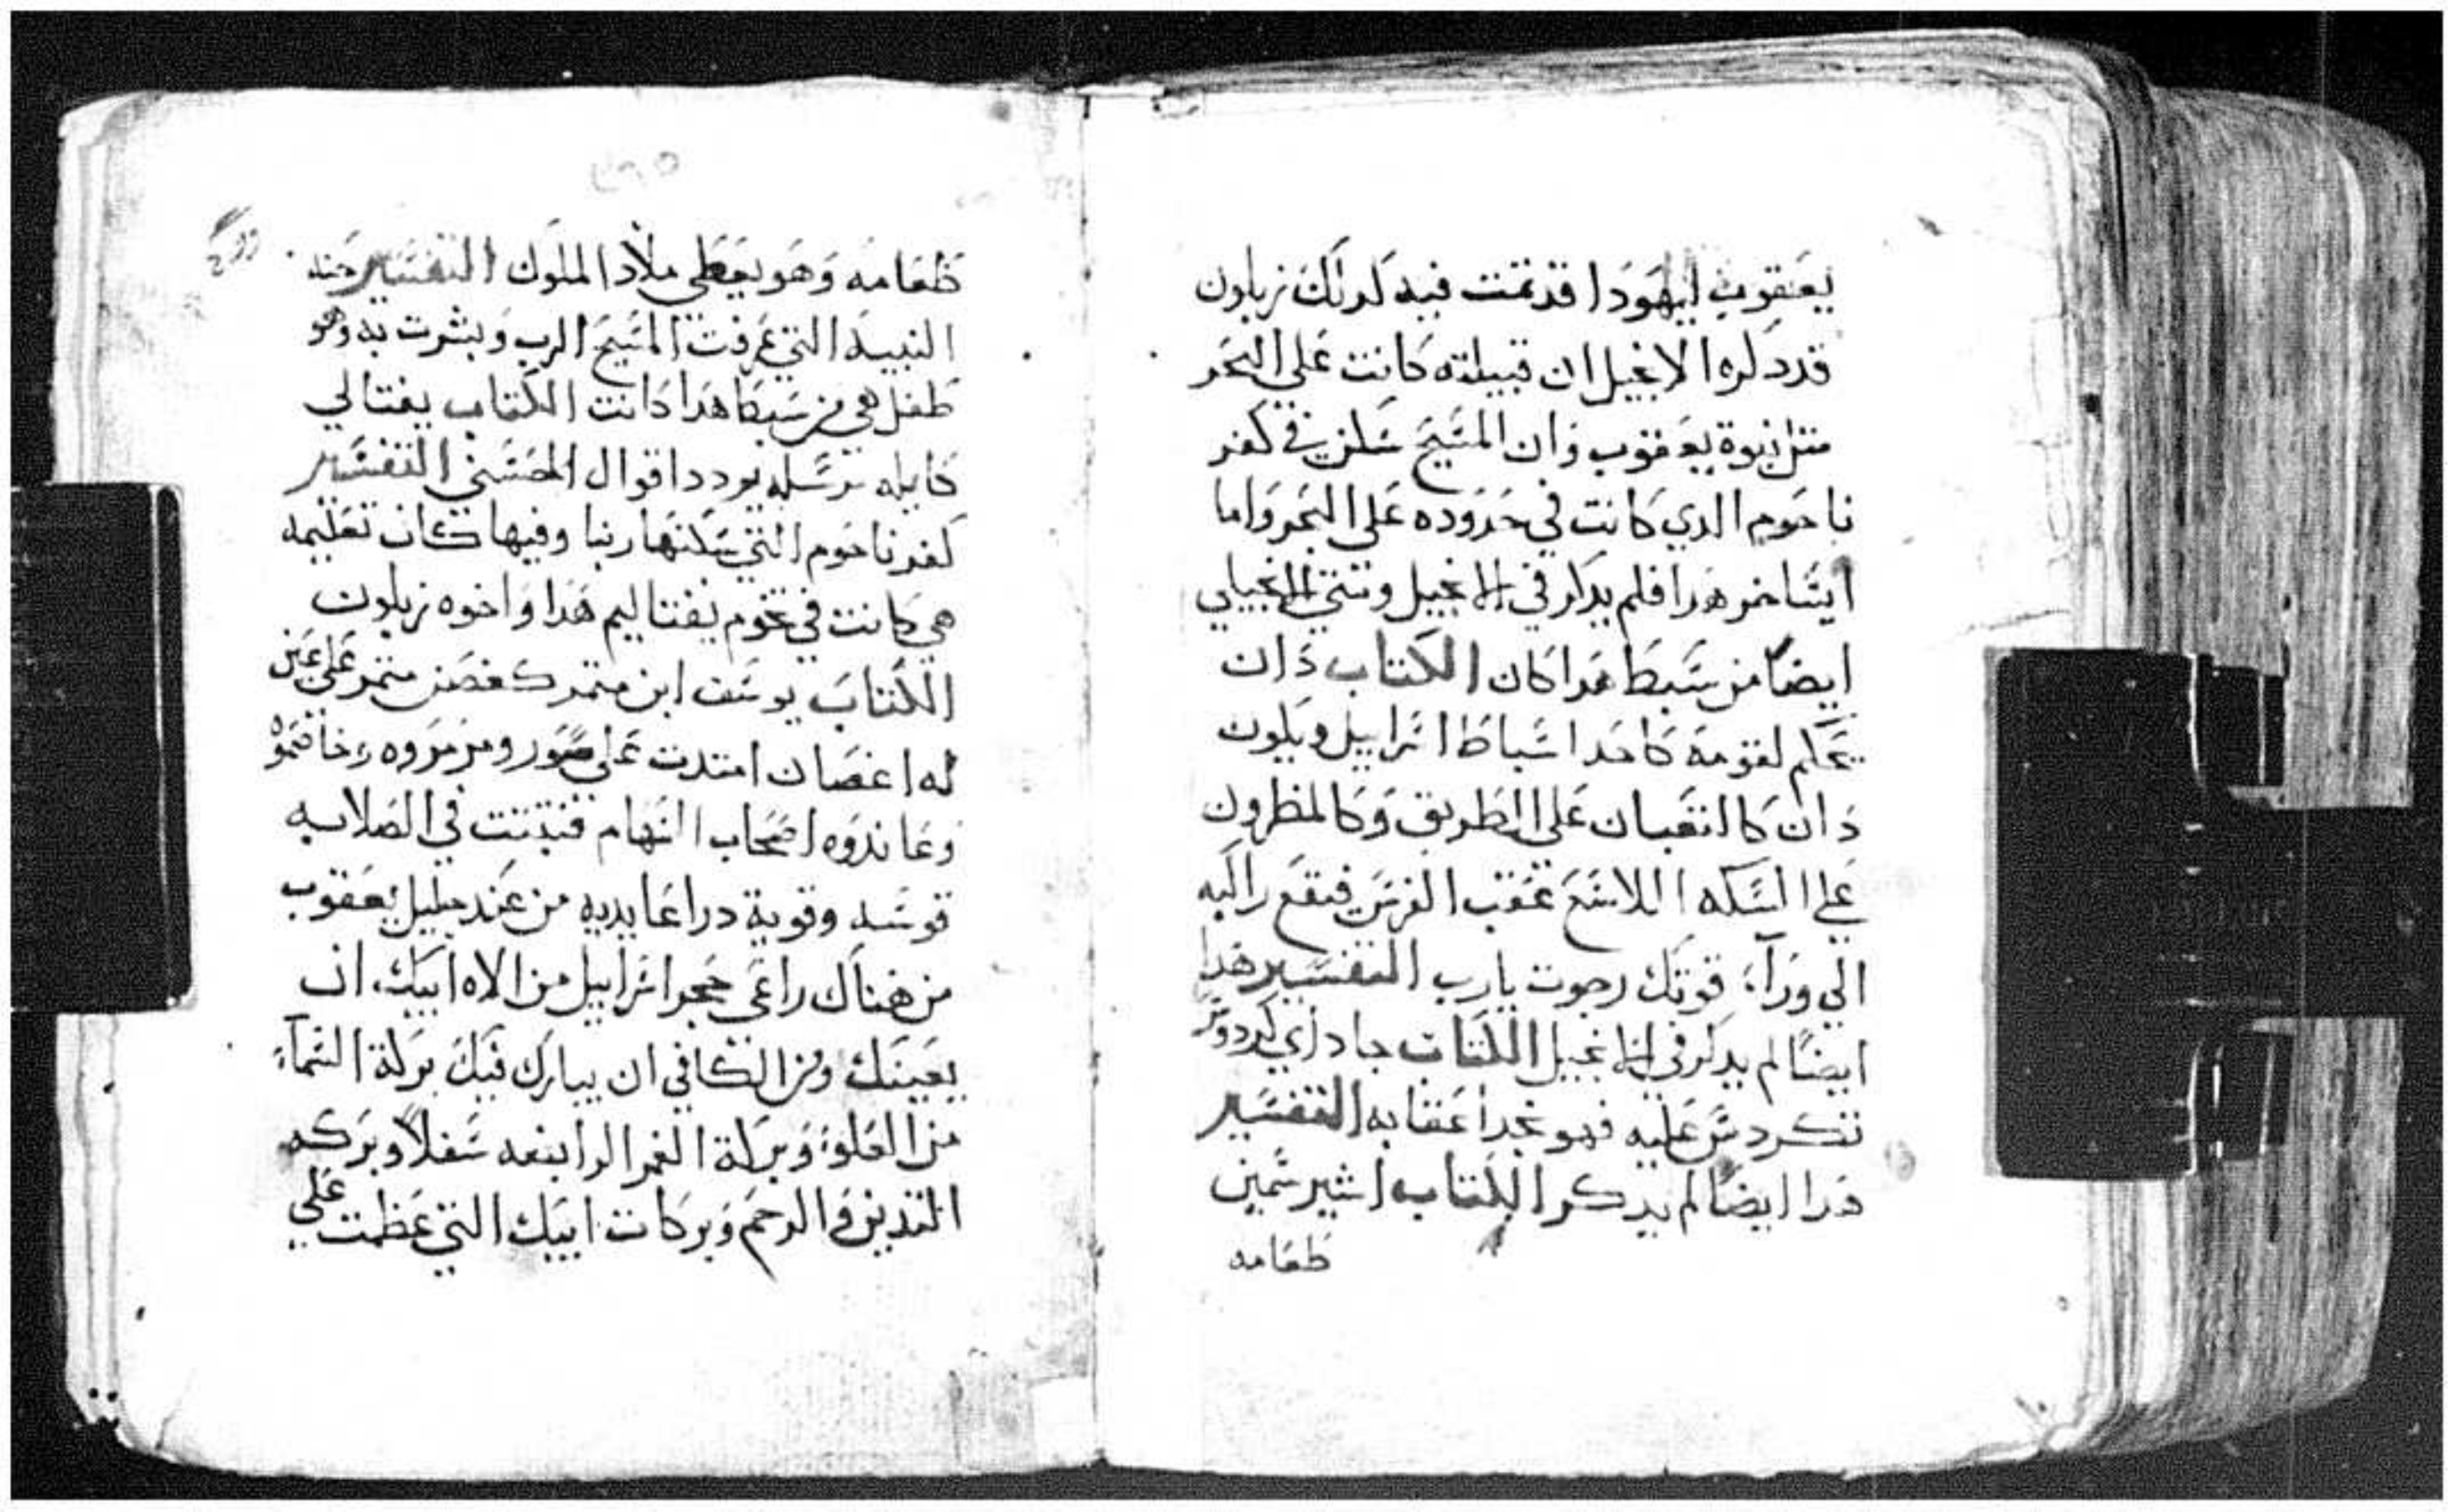 يعقوب ليهودا قد تمت فيه كدلك زبلون
قد دكره الانجيل ان قبيلته كانت علي البحر
متل نبوة يعقوب وان المسيح سكن في كفر
ناحوم الدي كانت في حدوده علي البحر واما
ايساخر هدا فلم يدكر في الانجيل ومتي الانجيلي
ايضا من سبط هدا كان الكتاب دان
يحكم لقومه كاحد اسباط اسراييل ويكون
دان كالتعبان علي الطريق وكالمطرون
علي السكه اللاسع عقب الفرس فيقع راكبه
الي ورآء قوتك رجوت يارب التفسير هدا
ايضا لم يدكر في الانجيل الكتاب جاد اي كردوس
تكردس عليه فهو نجدا عقابه التفسير
هدا ايضا لم يدكر الكتاب اشير سمين
طعامه
طعامه وهو يعطي ملاد الملوك التفسير حنه
النبيه التي عرفت المسيح الرب وبشرت به وهو
طفل هي من سبط هدا كانت الكتاب يفتالي
كايله ترسله يردد اقوال الحسني التفسير
كفرناحوم التي سكنها ربنا وفيها كان تعليمه
هي كانت في تخوم يفتاليم هدا واخوه زبلون
الكتاب يوسف ابن متمر كغصن متمر علي عين
له اغصان امتدت علي سور ومرمروه وخاصموه
وعاندوه اصحاب السهام فتبتت في الصلابه
قوسه وقوية دراعا يديه من عند جليل يعقوب
من هناك راعي حجر اسراييل من الاه ابيك ان
يعينك ومن الكافي ان يبارك فيك بركة السمآء
من العلو وبركة الغمر الرابضه سفلا وبركه
التديين والرحم وبركات ابيك التي عظمت علي